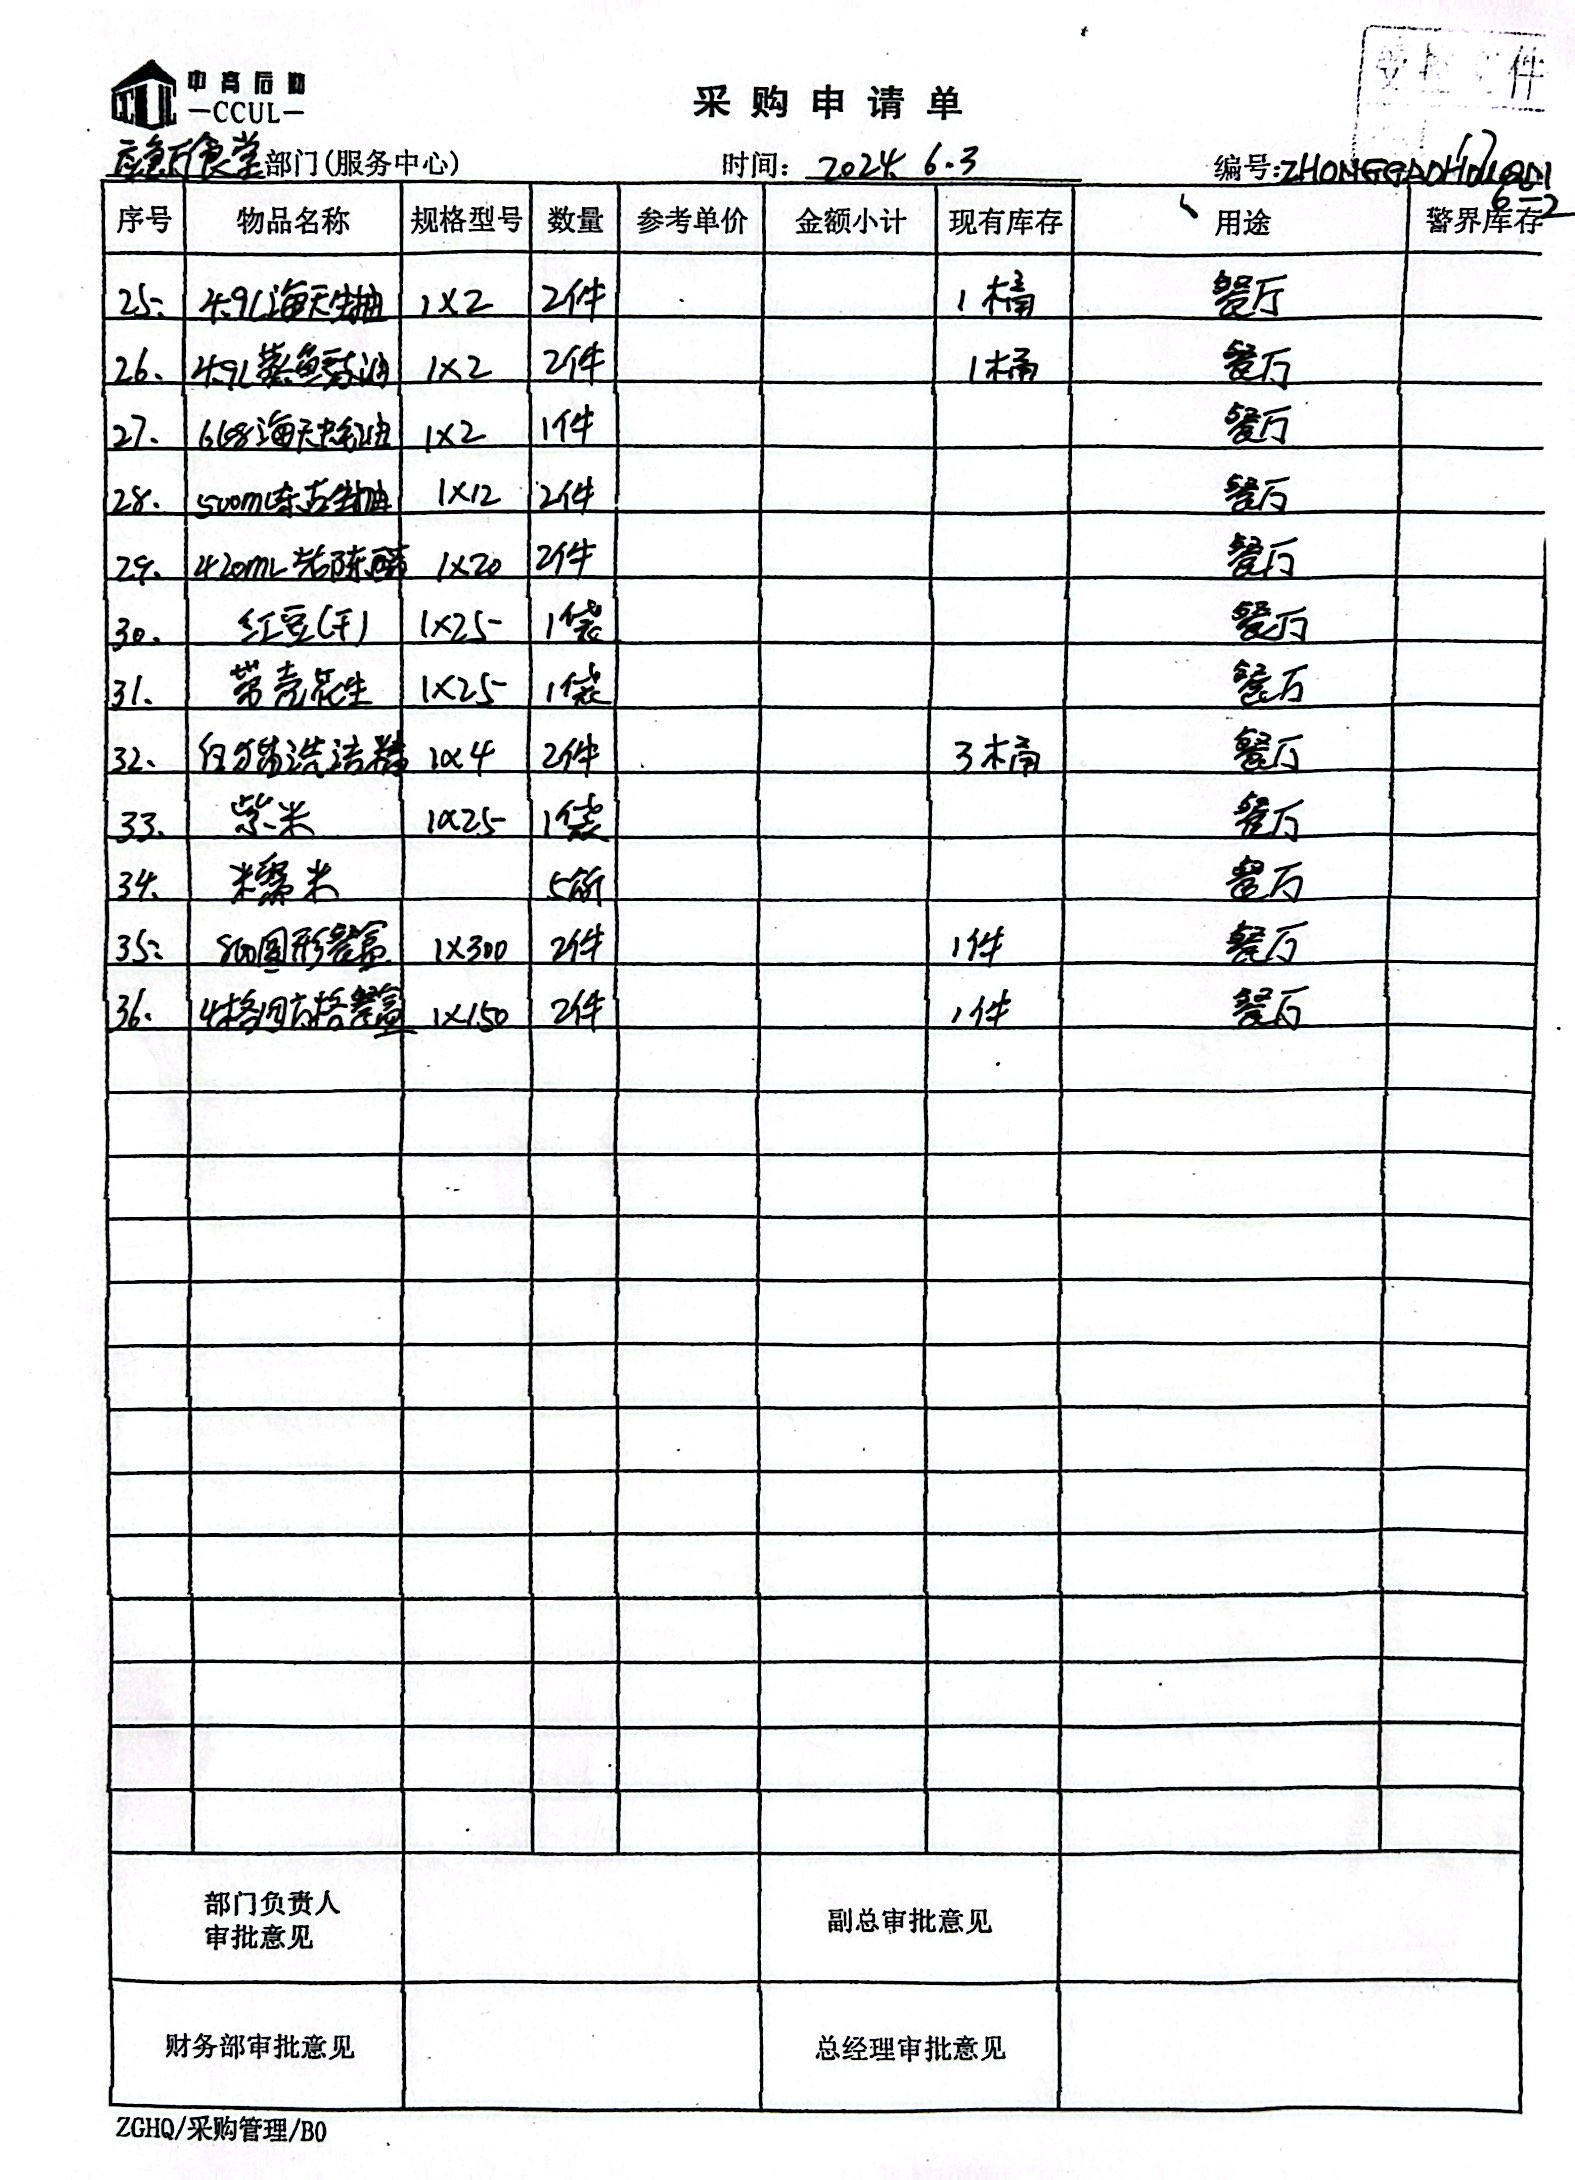 中育后勤
—CCUL—
采购申请单
应急厅食堂部门(服务中心) 时间: 2024. 6.3 编号:
6-2
序号 物品名称 规格型号 数量 参考单价 金额小计 现有库存 用途 警界库存
25. 4.9L海天生抽 1X2 2件 1桶 餐厅
26. 4.9L蒸鱼豉油 1X2 2件 1桶 餐厅
27. 海天蚝油 1X2 1件 餐厅
28. 500mL东古生抽 1X12 2件 餐厅
29. 420mL 老陈醋 1X20 2件 餐厅
30. 红豆(干) 1X25 1袋 餐厅
31. 带壳花生 1X25 1袋 餐厅
32. 白猫洗洁精 1X4 2件 3桶 餐厅
33. 紫米 1X25 1袋 餐厅
34. 糯米 5斤 餐厅
35. 800圆形餐盒 1X300 2件 1件 餐厅
36. 4格四方格餐盒 1X150 2件 1件 餐厅
部门负责人
审批意见
副总审批意见
财务部审批意见 总经理审批意见
ZGHQ/采购管理/B0